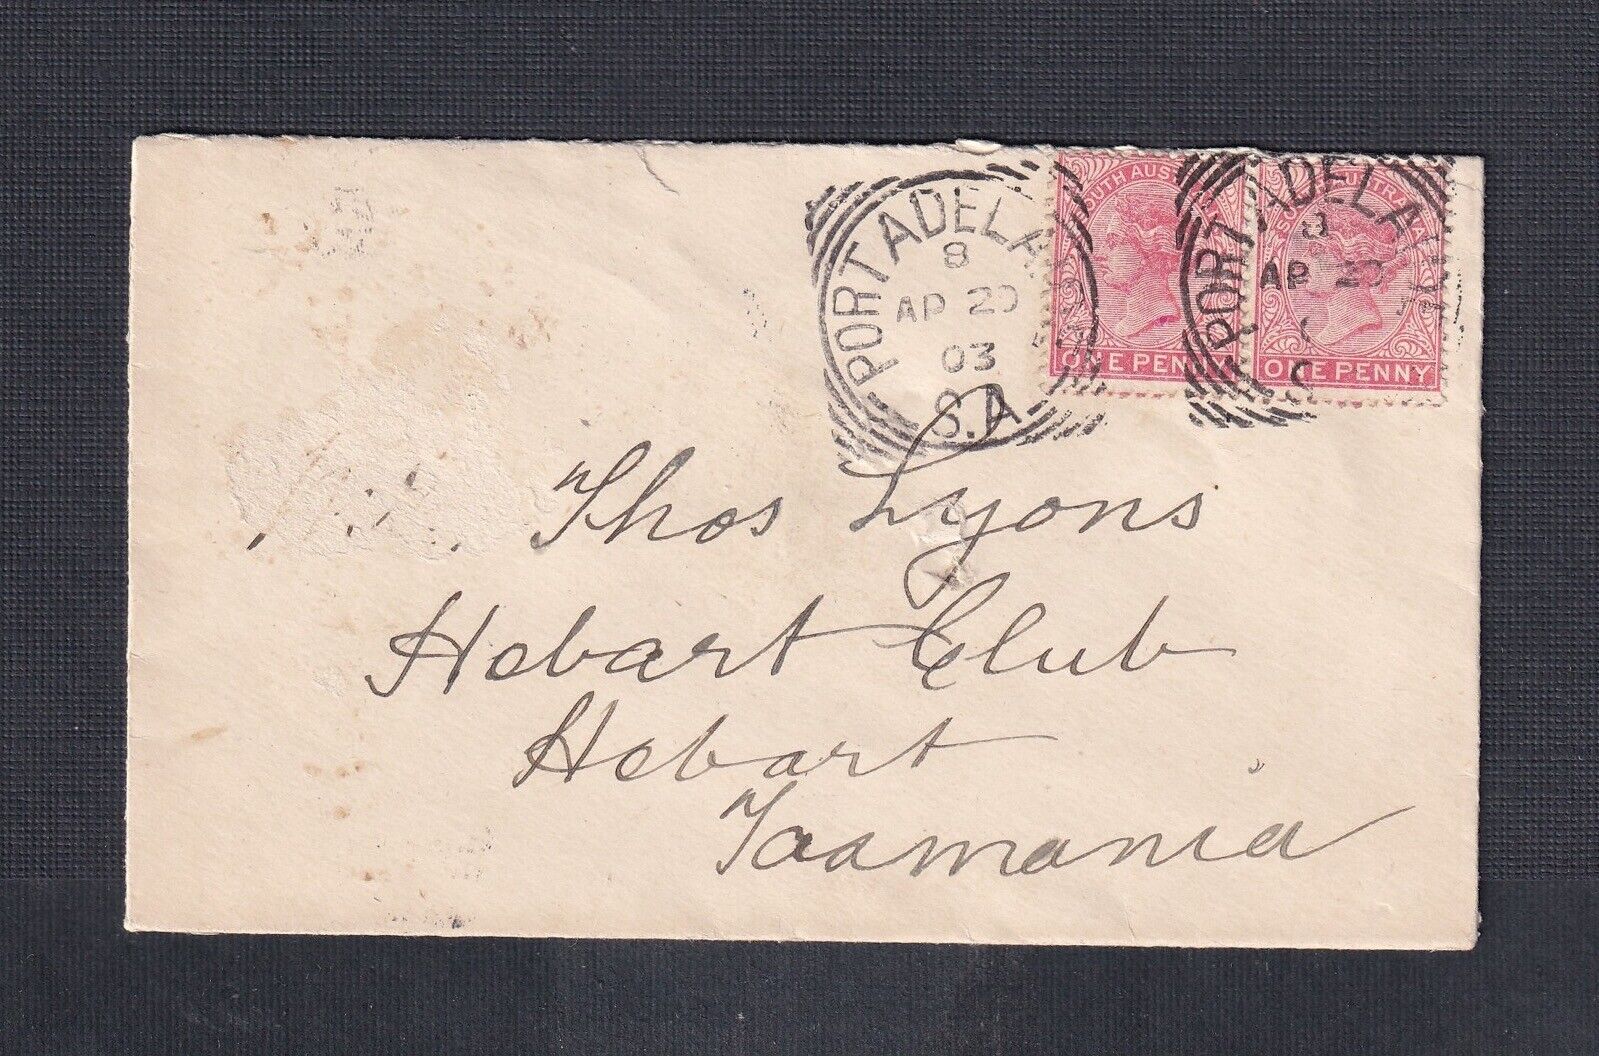 PORT ADELAIDE
8
AP 20
03
S.A
SOUTH AUSTRALIA
ONE PENNY
PORT ADELAIDE
8
AP 20
S
SOUTH AUSTRALIA
ONE PENNY
Thos Lyons
Hobart Club
Hobart
Tasmania